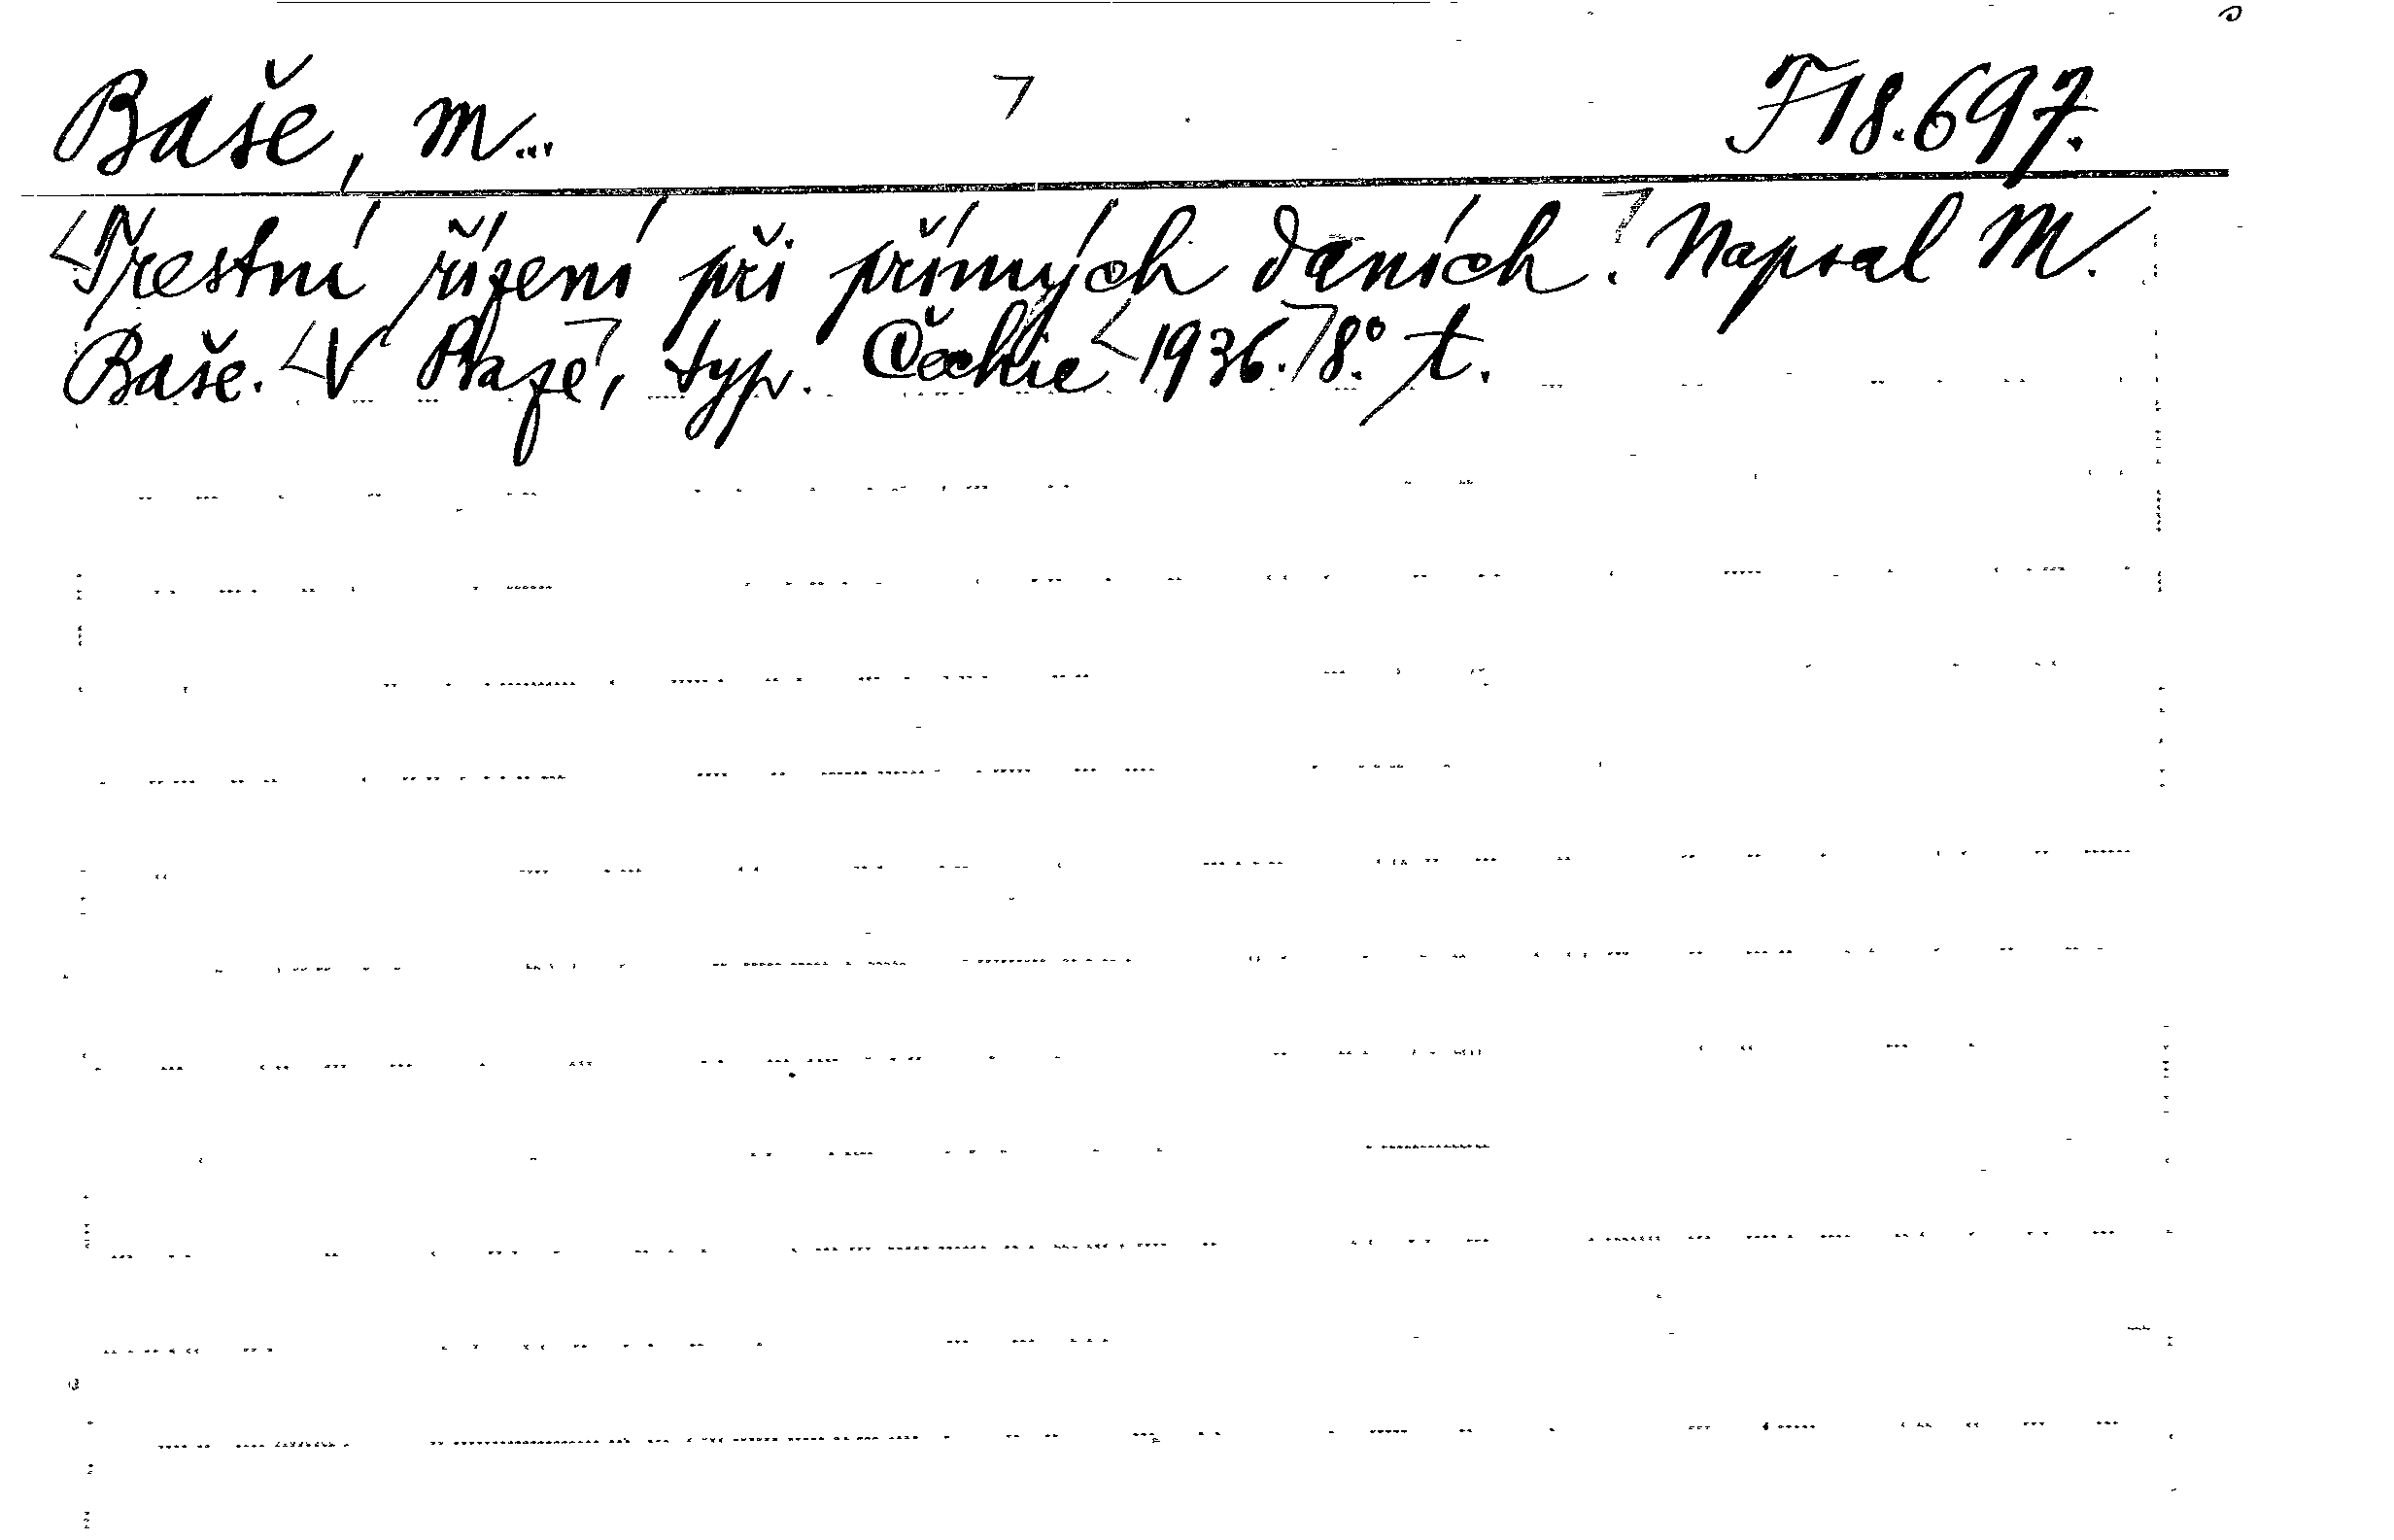 Baše, M... F18.697.
Trestní řízení při přímých daních. Napsal M.
Baše. V Praze, typ. Čechie 1936. 8°. t.